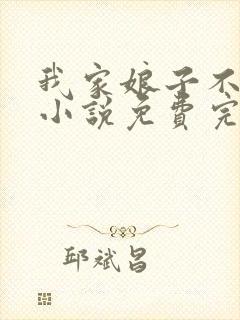 我家娘子不
小说免费完
邱斌昌